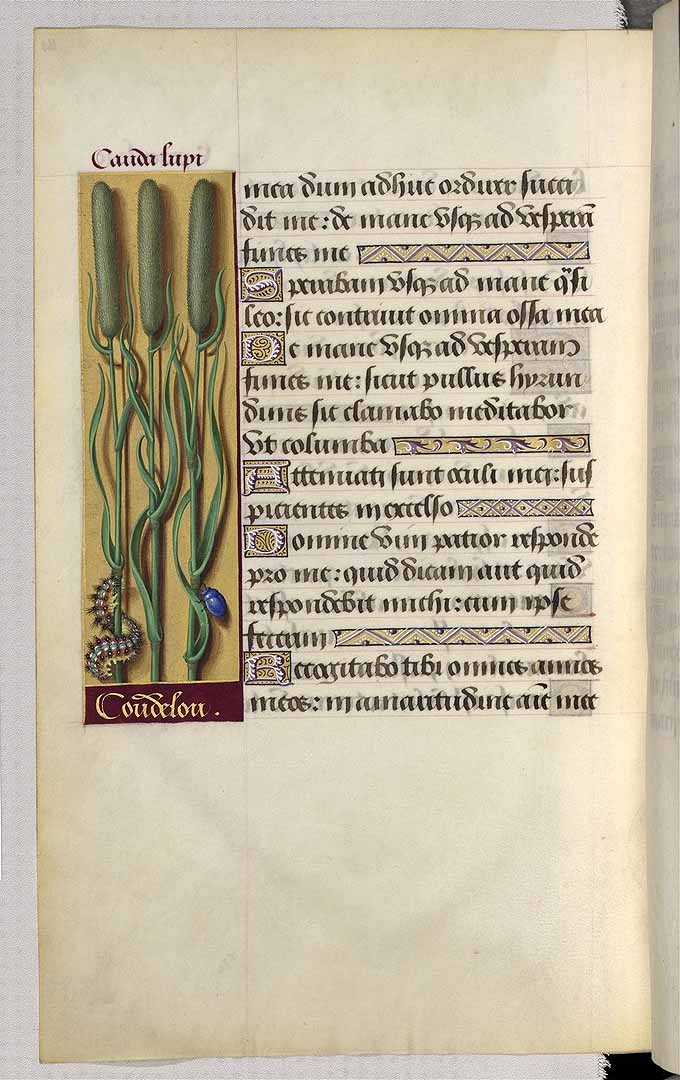 Cauda lupi
mea dum adhuc ordirer succi
dit me: de mane vsq; ad vesperā
finies me
Sperabam vsq; ad mane q̄si
leo: sic contriuit omnia ossa mea
De mane vsq; ad vesperam
finies me: sicut pullus hyrun
dinis sic clamabo meditabor
vt columba
Attenuati sunt oculi mei: sus
picientes in excelso
Domine vim patior responde
pro me: quid dicam aut quid
respondebit michi: cum ipse
fecerim
Recogitabo tibi omnes annos
meos: in amaritudine aīe mee
Coudelou.